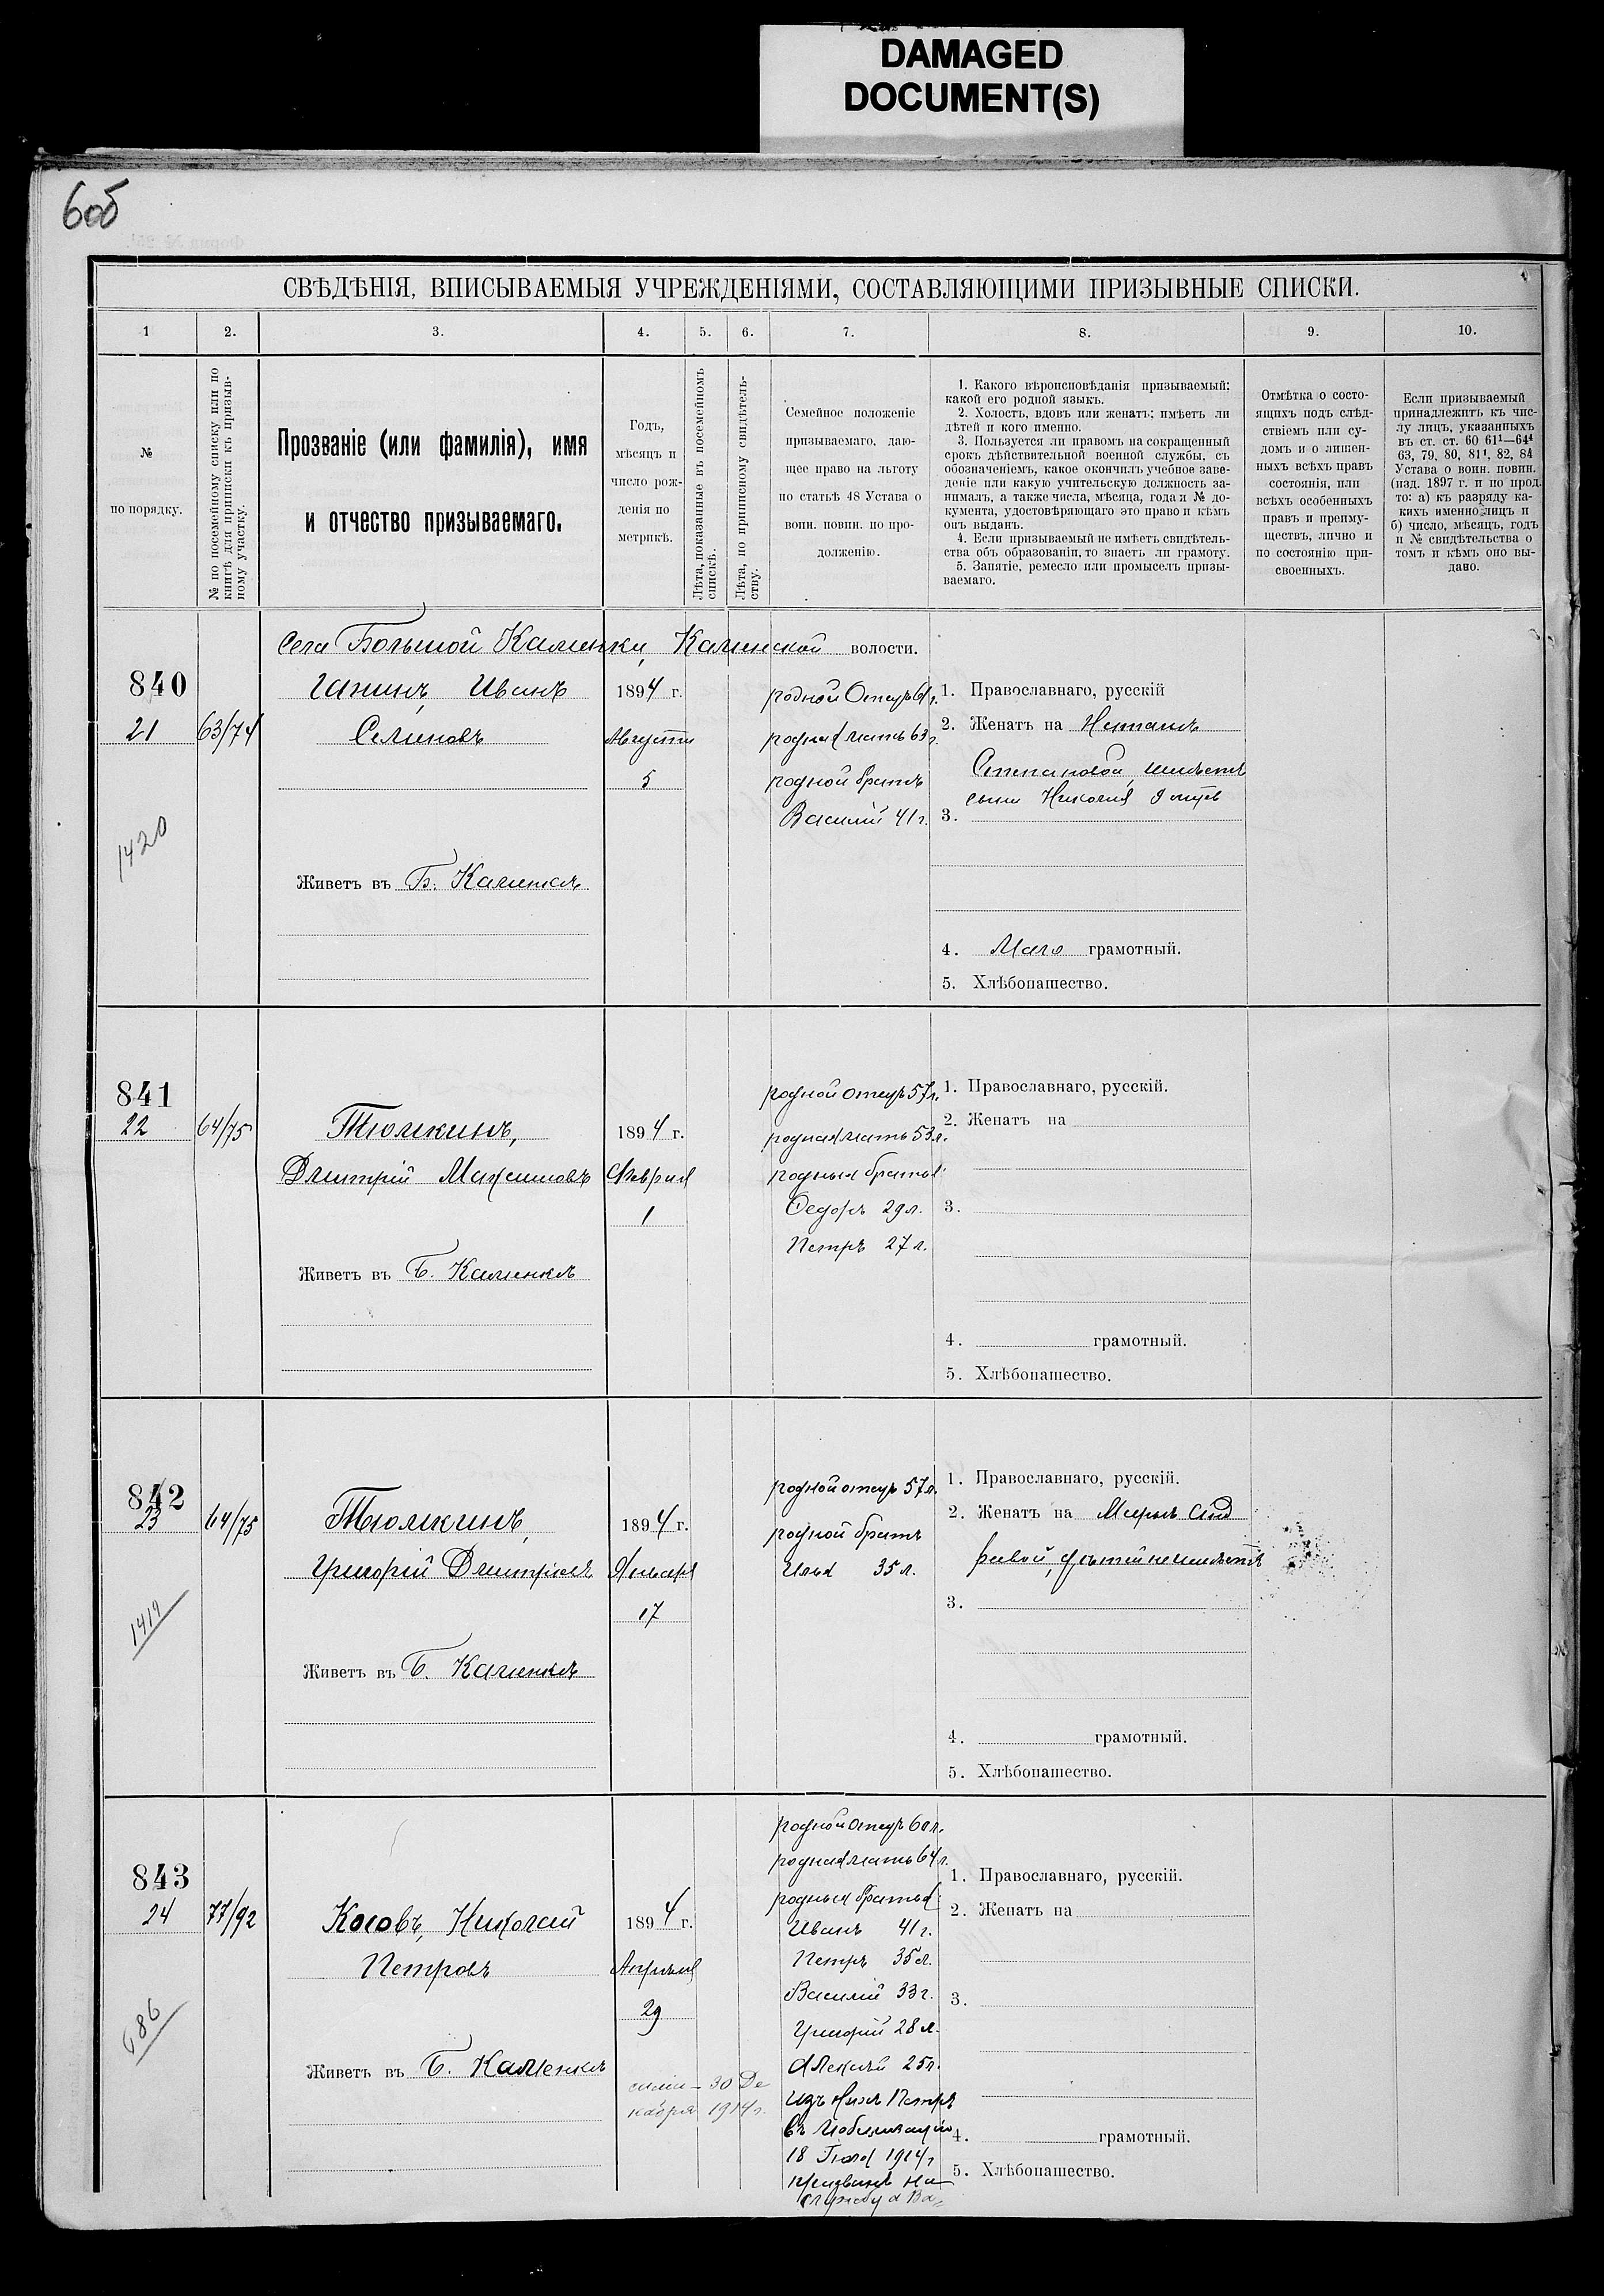 DAMAGED
DOCUMENT(S)
60б
СВѢДѢНІЯ, ВПИСЫВАЕМЫЯ УЧРЕЖДЕНІЯМИ, СОСТАВЛЯЮЩИМИ ПРИЗЫВНЫЕ СПИСКИ.
1
2.
3.
4.
5.
6.
7.
8.
9.
10.
№
по порядку.
№ по посемейному списку или по
книгѣ для приписки къ призыв-
ному участку.
Прозваніе (или фамилія), имя
и отчество призываемаго.
Годъ,
мѣсяцъ и
число рож-
денія по
метрикѣ.
Лѣта, показанные въ посемейномъ
спискѣ.
Лѣта, по приписному свидѣтель-
ству.
Семейное положеніе
призываемаго, даю-
щее право на льготу
по статьѣ 48 Устава о
воин. повин. по про-
долженію.
1. Какого вѣроисповѣданія призываемый:
какой его родной языкъ.
2. Холостъ, вдовъ или женатъ: имѣетъ ли
дѣтей и кого именно.
3. Пользуется ли правомъ на сокращенный
срокъ дѣйствительной военной службы, съ
обозначеніемъ, какое окончилъ учебное заве-
деніе или какую учительскую должность за-
нималъ, а также числа, мѣсяца, года и № до-
кумента, удостовѣряющаго это право и кѣмъ
онъ выданъ.
4. Если призываемый не имѣетъ свидѣтель-
ства объ образованіи, то знаетъ ли грамоту.
5. Занятіе, ремесло или промыселъ призы-
ваемаго.
Отмѣтка о состо-
ящихъ подъ слѣд-
ствіемъ или су-
домъ и о лишен-
ныхъ всѣхъ правъ
состоянія, или
всѣхъ особенныхъ
правъ и преиму-
ществъ, лично и
по состоянію при-
своенныхъ.
Если призываемый
принадлежитъ къ чис-
лу лицъ, указанныхъ
въ ст. ст. 60 61¹—64⁴
63, 79, 80, 81¹, 82, 84
Устава о воин. повин.
(изд. 1897 г. и по прод.
то: а) къ разряду ка-
кихъ именно лицъ и
б) число, мѣсяцъ, годъ
и № свидѣтельства о
томъ и кѣмъ оно вы-
дано.
Села Большой Каменки, Каменской волости.
840
21
63/74
1420
Ганинъ, Иванъ
Семеновъ
Живетъ въ Б. Каменкѣ
1894 г.
Августа
5
родной Отецъ 61г.
родная мать 63г.
родной братъ
Василій 41 г.
1. Православнаго, русскій
2. Женатъ на
Степановой, имѣетъ
сына Николая 9 мцѣ
3.
4. Мало грамотный.
5. Хлѣбопашество.
841
22
64/75
Тюмкинъ,
Дмитрій Максимовъ
Живетъ въ Б. Каменкѣ
1894 г.
Февраля
1
родной отецъ 57л.
родная мать 53л.
родныя братья
Федоръ 29л.
Петръ 27л.
1. Православнаго, русскій.
2. Женатъ на
3.
4. грамотный.
5. Хлѣбопашество.
842
23
64/75
1419
Тюмкинъ,
Григорій Дмитріевъ
Живетъ въ Б. Каменкѣ
1894 г.
Января
17
родной отецъ 57л.
родной братъ
Илья 35л.
1. Православнаго, русскій.
2. Женатъ на Марьѣ Анд
реевой, дѣтей не имѣетъ
3.
4. грамотный.
5. Хлѣбопашество.
843
24
77/92
686
Косовъ, Николай
Петровъ
Живетъ въ Б. Каменкѣ
1894 г.
Апрѣля
29
30 Де
кабря 1914г.
родной отецъ 60л.
родная мать 64г.
родныя братья:
Иванъ 41г.
Петръ 35л.
Василій 33г.
Григорій 28л.
Алексѣй 25л.
Изъ нихъ Петръ
въ мобилизацію
18 Іюля 1914г
призванъ на
службу а Ва-
1. Православнаго, русскій.
2. Женатъ на
3.
4. грамотный.
5. Хлѣбопашество.